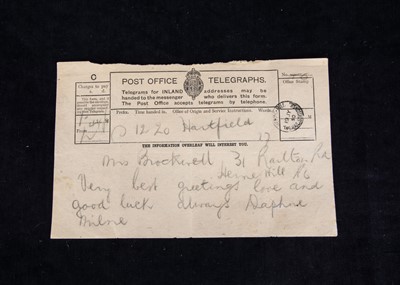 C
POST OFFICE TELEGRAPHS.
Charges to pay
s. d.
Telegrams for INLAND addresses may be
handed to the messenger who delivers this form.
The Post Office accepts telegrams by telephone.
No.
Office Stamp
Prefix. Time handed in. Office of Origin and Service Instructions. Words.
From
12.20 Hartfield 17
THE INFORMATION OVERLEAF WILL INTEREST YOU.
Mrs Brockwell 31 Railton Rd
Herne Hill
Very best greetings love and
good luck always Daphne
Milne